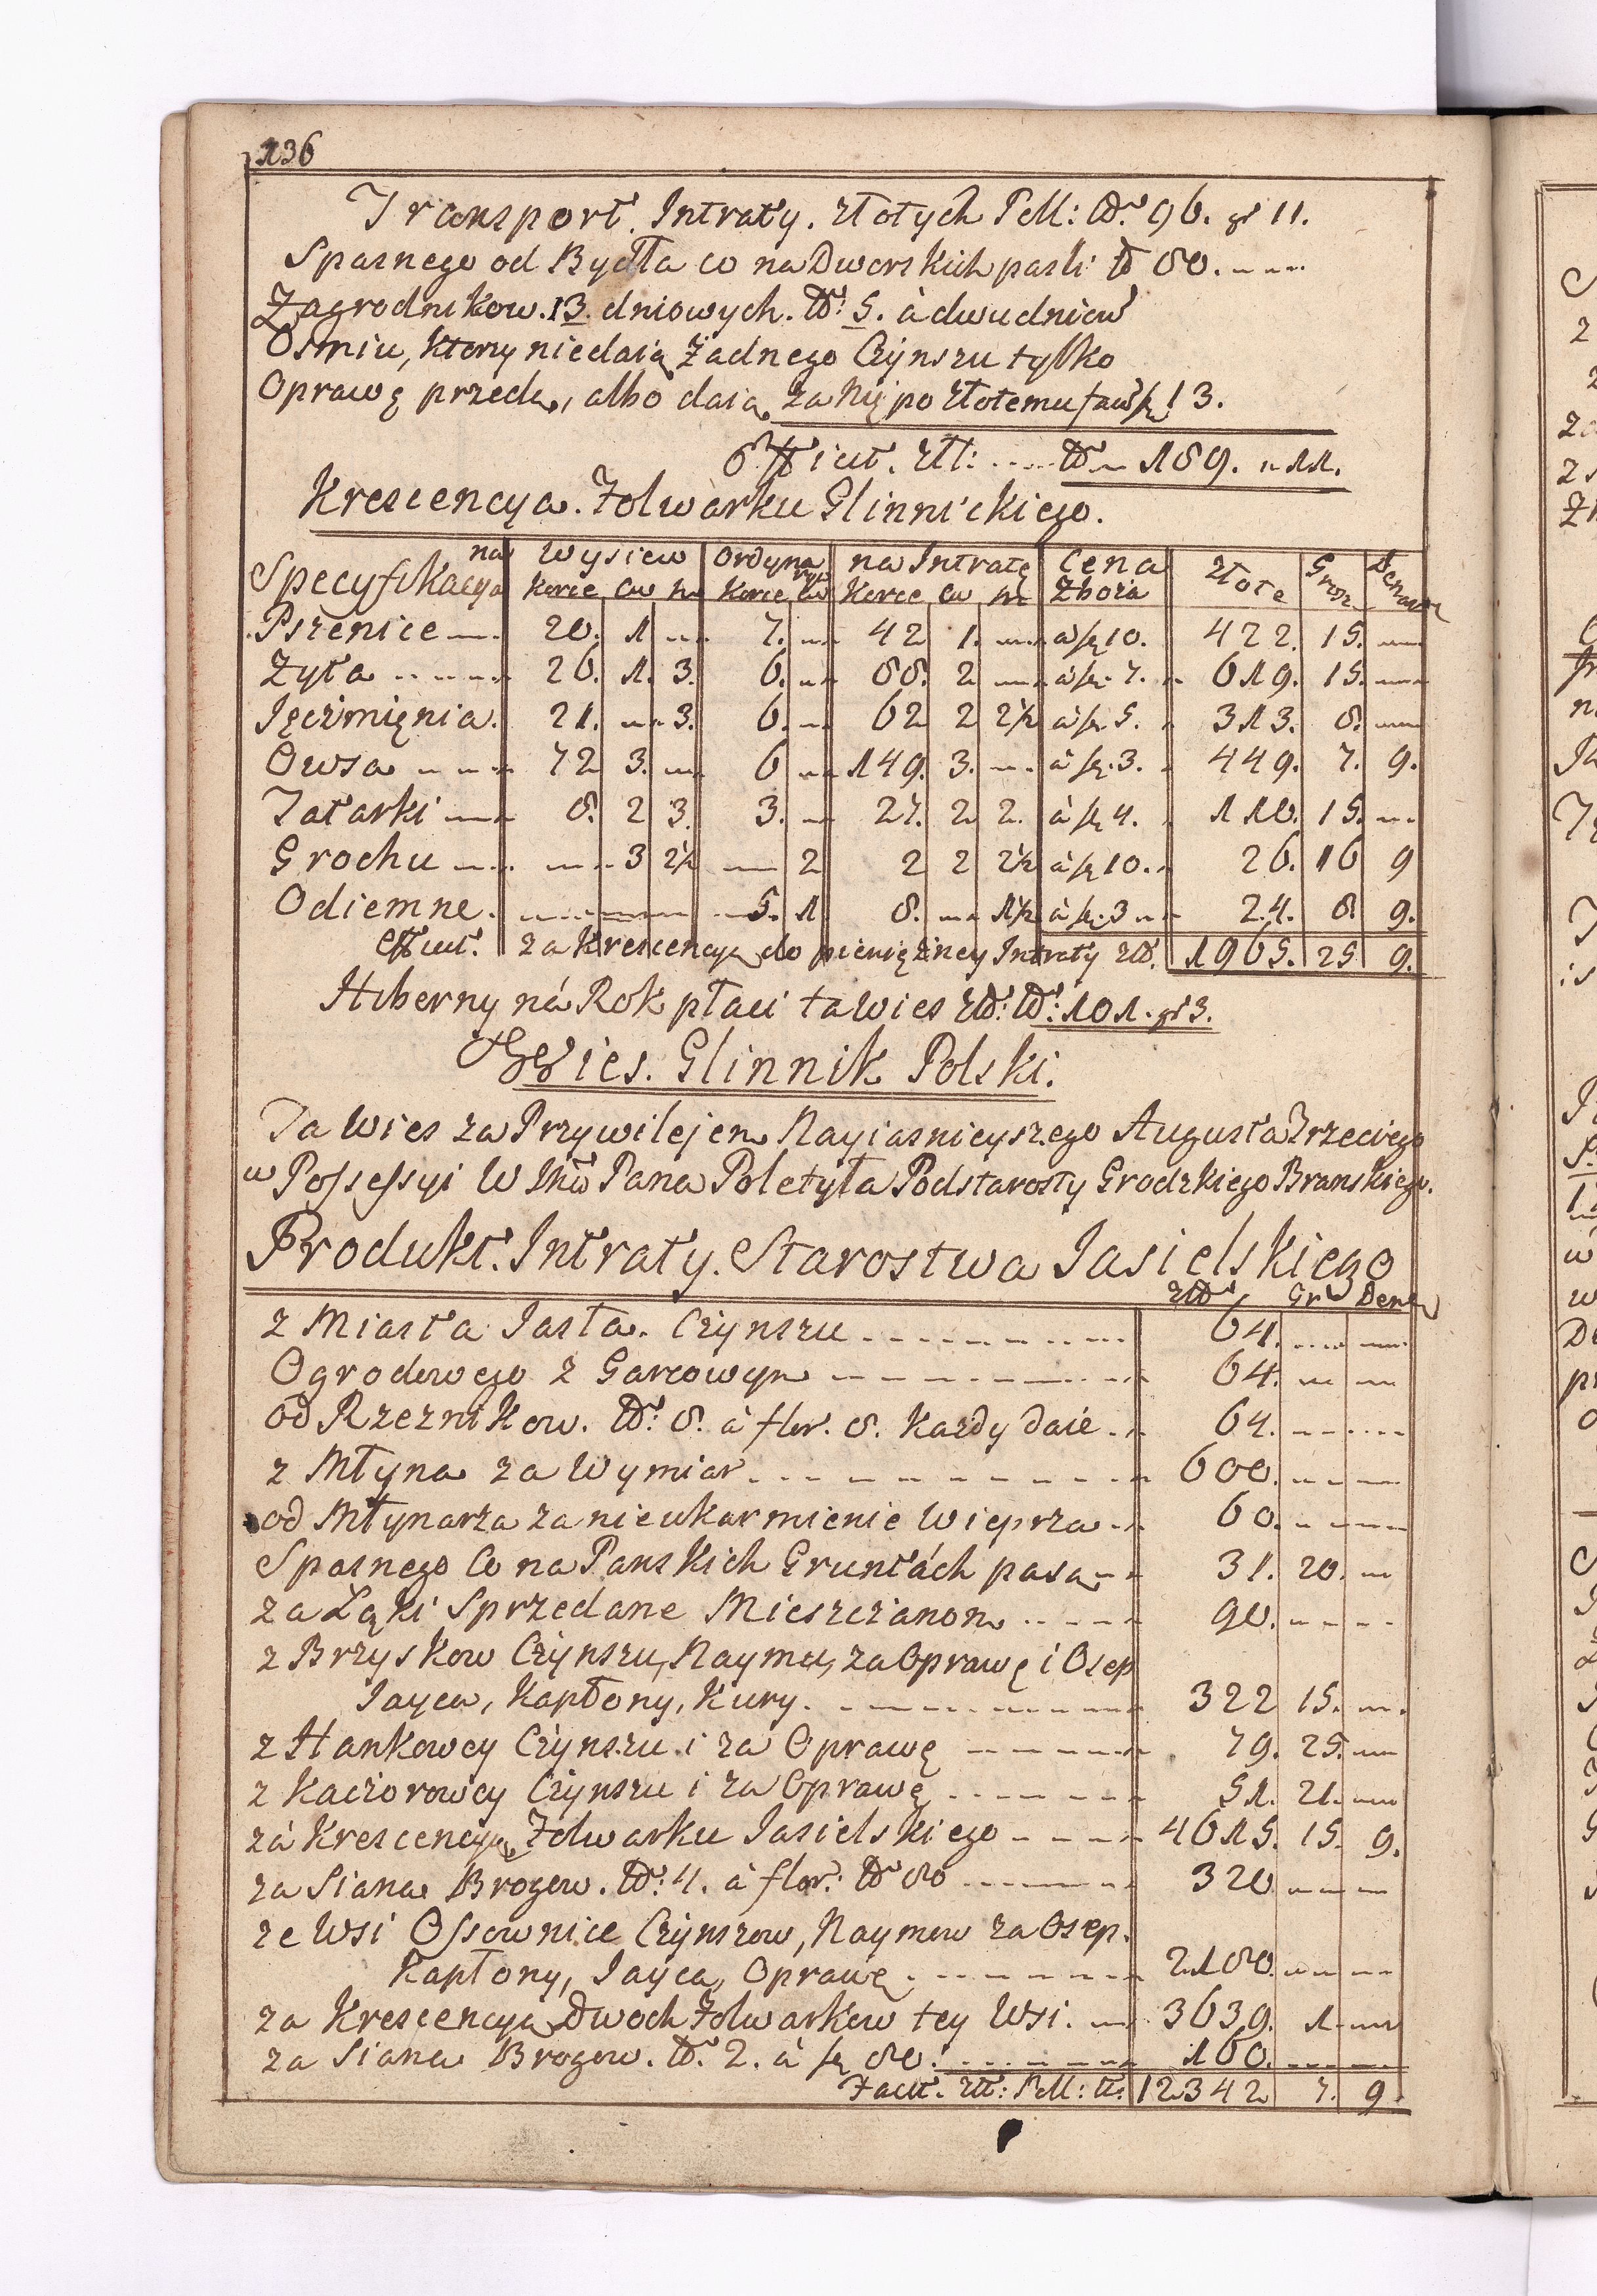 136
Transport. Intraty. złotych Poll: No 96. gr 11.
Spasnego od Bydła co na Dworskich pasli No 80.
Zagrodnikow. 13. dniowych. No: 5. à dwudniow
Osmiu, ktory niedaią Żadnego Czynszu tylko
Oprawę przedą, albo daią za Nię po złotemu facit 13.
Efficit. Złł: No 189. " 11.
Krescencya. Folwarku Glinnickiego.
Specyfikacya na Wysiew Ordyna ryą na Intratę Cena Złote Grosz Denary
Korce Cw Korce Cw Korce Cw Zboża
Pszenice 20. 1 7. 42 1. à fl 10. 422. 15.
Żyta 26. 1. 3. 6. 88. 2 à fl. 7. 619. 15.
Jęczmięnia. 21. 3. 6. 62 2 2½ à fl. 5. 313. 8.
Owsa 72 3. 6 149. 3. à fl. 3. 449. 7. 9.
Tatarki 8. 2 3. 3. 27. 2 2. à fl 4. 110. 15.
Grochu 3 2½ 2 2 2 2½ à fl 10. 26. 16 9
Odiemne. 5. 1 8. 1½ à fl. 3 24. 8 9.
Efficit. za Krescencyą do pieniężney Intraty złł. 1965. 25 9.
Hiberny ná Rok płaci ta Wies złł: No: 101. gr 3.
Wies. Glinnik Polski.
Ta Wies za Przywilejem Nayiasnieyszego Augusta Trzeciego
w Possessyi W Jmć Pana Poletyła Podstarosty Grodzkiego Branskiego.
Produkt. Intraty. Starostwa Jasielskiego
złł Gr Den
z Miasta Jasła. Czynszu 64.
Ogrodowego z Garcowym 64.
od Rzeznikow. No: 8. à flor. 8. każdy daie 64.
z Młyna za Wymiar 600.
od Młynarza za nieukarmienie Wieprza 60.
Spasnego Co na Panskich Gruntách pasą 31. 20.
za Łąki Sprzedane Mieszczanom 90.
z Brzyskow Czynszu, Naymu, za Oprawę i Osep
Jayca, Kapłony, Kury. 322 15.
z Hankowey Czynszu i za Oprawę 79. 25.
z Kaczorowey Czynszu i za Oprawę 51. 21.
zá Krescencyą Folwarku Jasielskiego 4615. 15. 9.
za Siana Brogow. No: 4. à flor: No 80 320
ze Wsi Ossownice Czynszow, Naymow za Osep.
Kapłony, Jayca, Oprawę. 2180.
za Krescencyą Dwoch Folwarkow tey Wsi. 3639. 1.
za Siana Brogow. No. 2. à fl 80. 160.
Facit. Złł: Poll: No: 12342 7. 9.